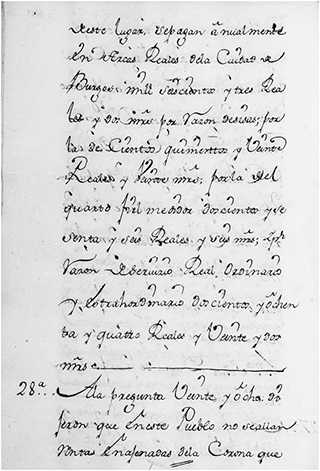 deste lugar, se pagan ânualmente
En Arcas Reales dela Ciudad de
Burgos: mill seiscientos y tres Rea
les y dos mrs por Razon desisas; por
la de Cientos quinientos y Veinte
Reales y Veinte mrs; por la del
quarto fiel medidor Doscientos y se
senta y seis Reales y seis mrs; y p.r
Razon de servizio Real, Ordinario
y Extrahordinario doscientos y ochen
ta y quatro Reales y Veinte y dos
mrs
28.ª... Ala pregunta Veinte y Ocho di
jeron que Eneste Pueblo no se allan
Rentas Enajenadas dela Corona que